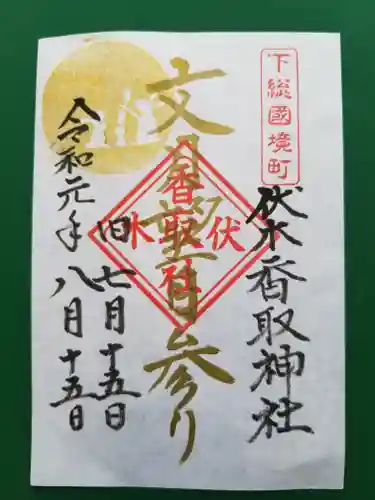 下総國境町
伏木香取神社
文月望百参り
香
伏取木
社
旧七月十五日
令和元年八月十五日